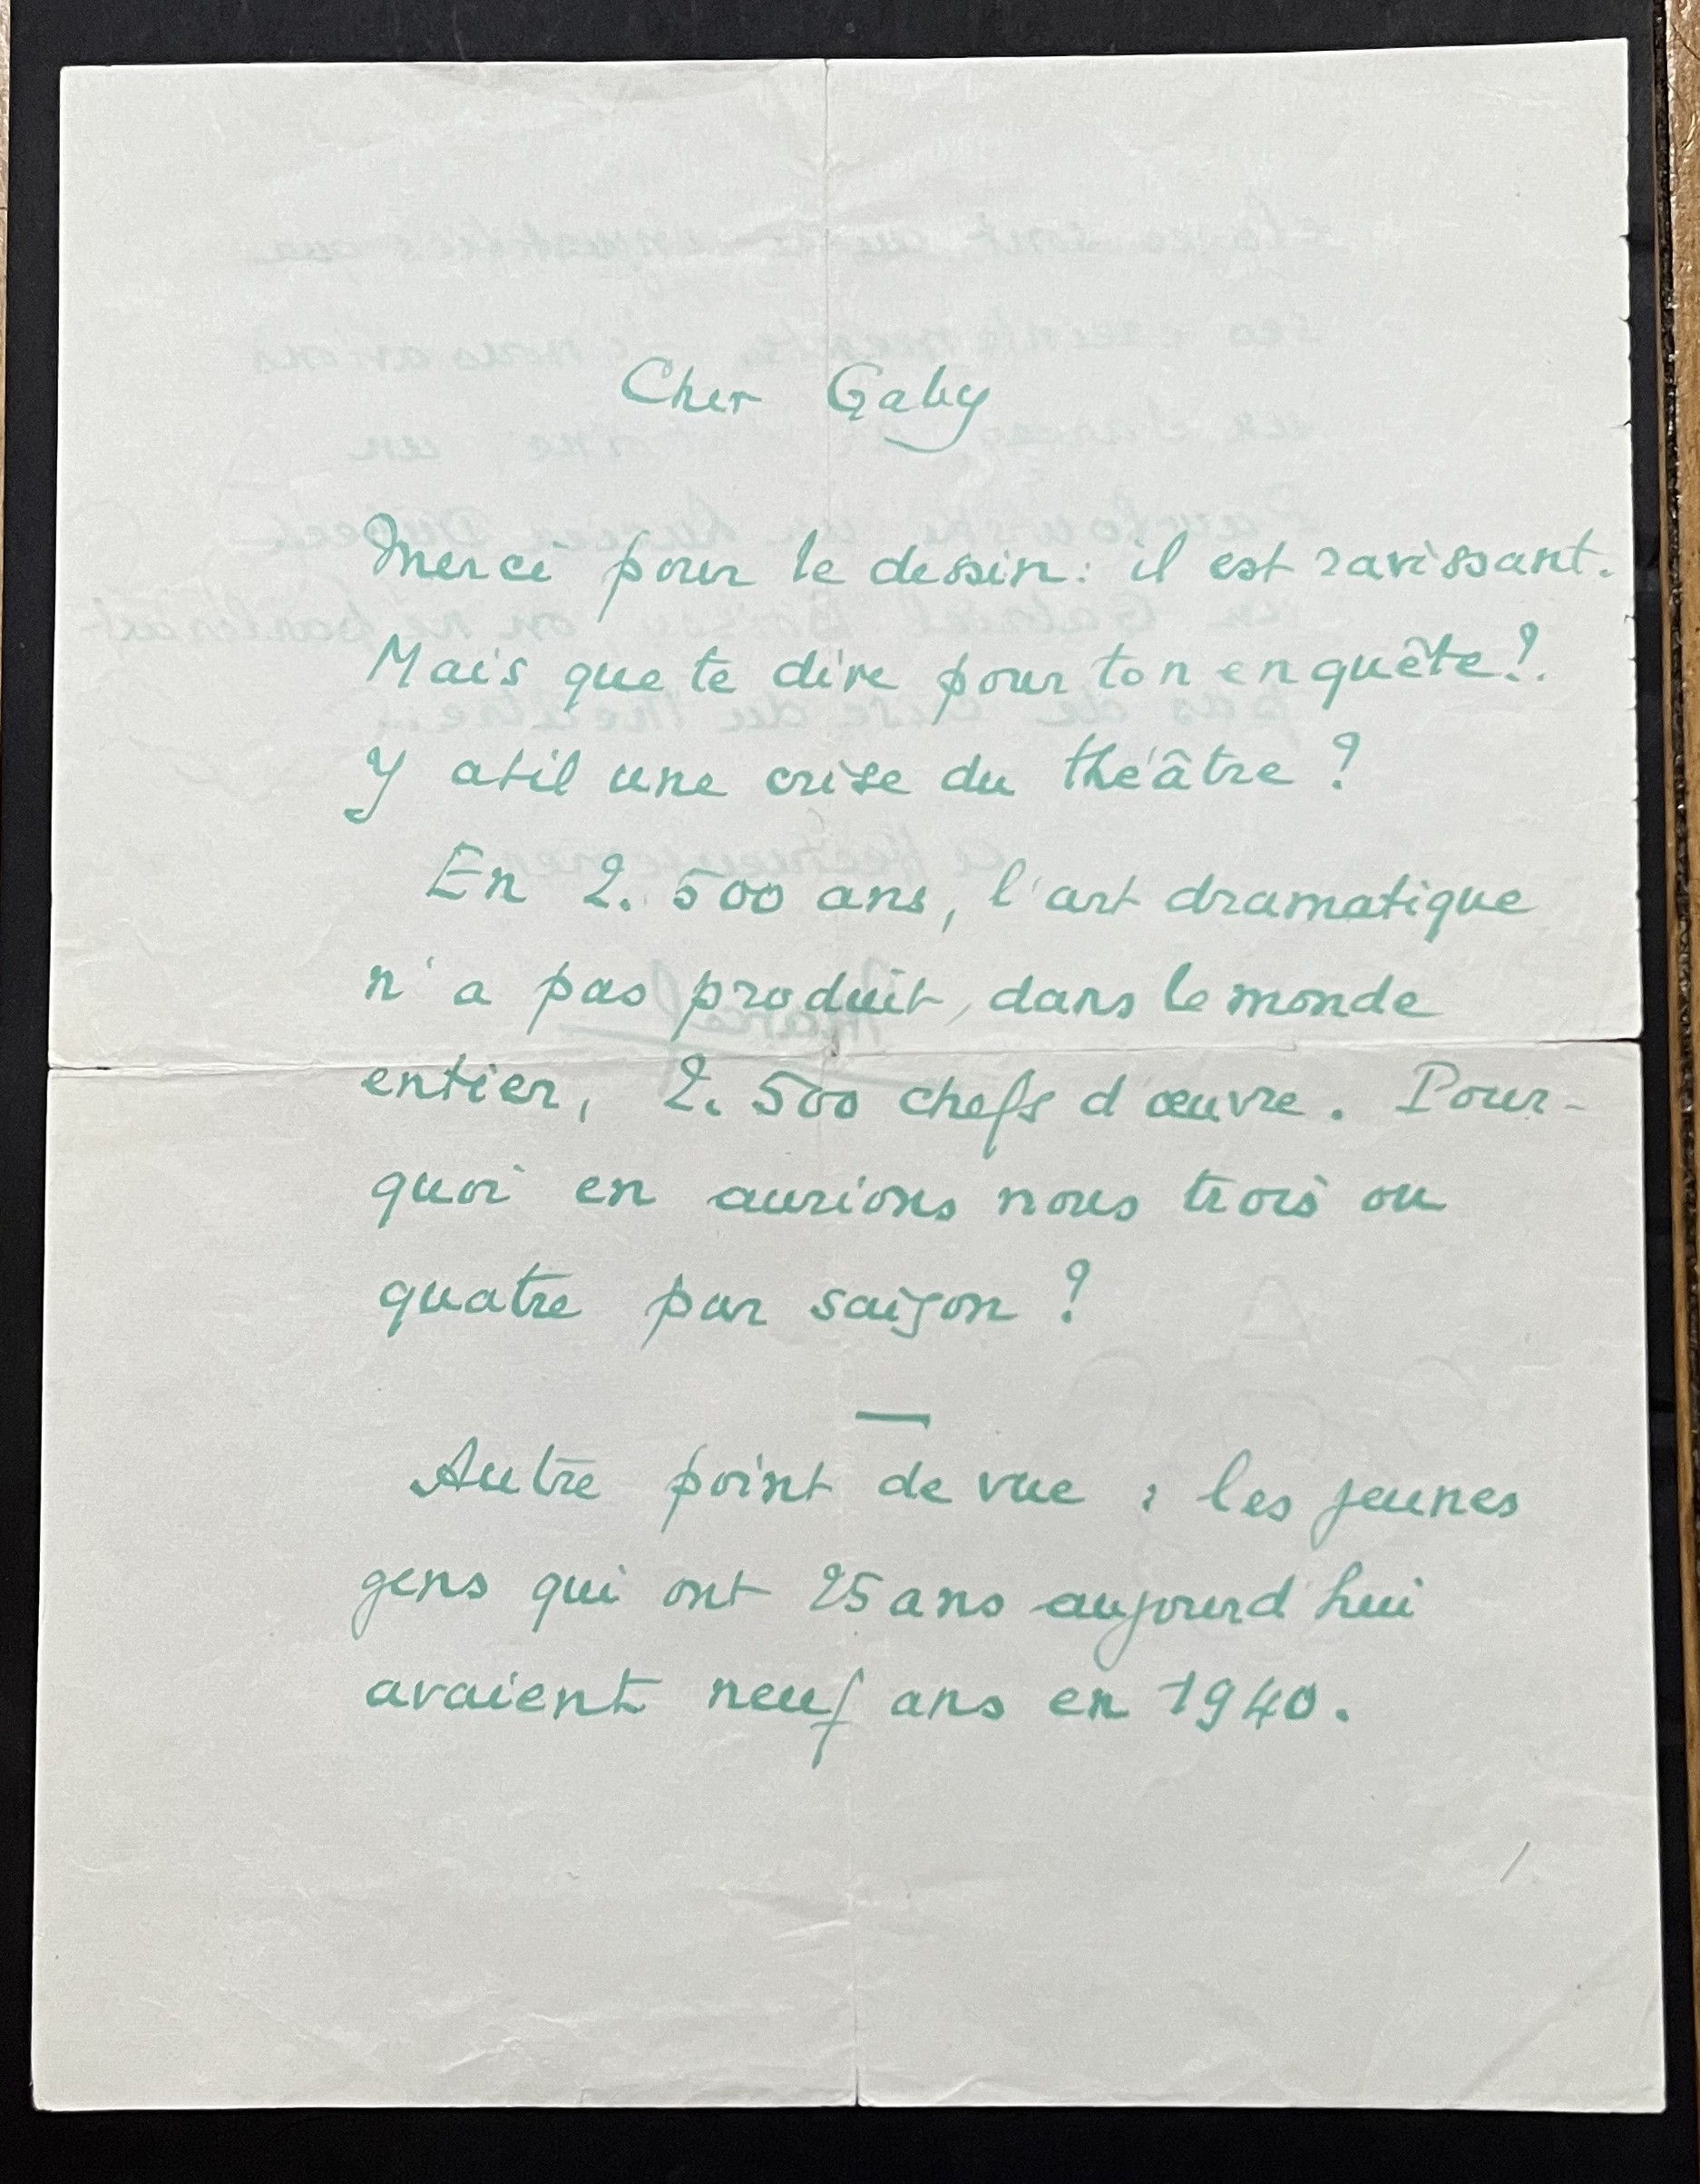 Cher Gaby
Merci pour le dessin: il est ravissant.
Mais que te dire pour ton enquête?.
Y atil une crise du théâtre ?
En 2.500 ans, l'art dramatique
n'a pas produit, dans le monde
entier, 2.500 chefs d'œuvre. Pour-
quoi en aurions nous trois ou
quatre par saison ?
—
Autre point de vue : les jeunes
gens qui ont 25 ans aujourd'hui
avaient neuf ans en 1940.